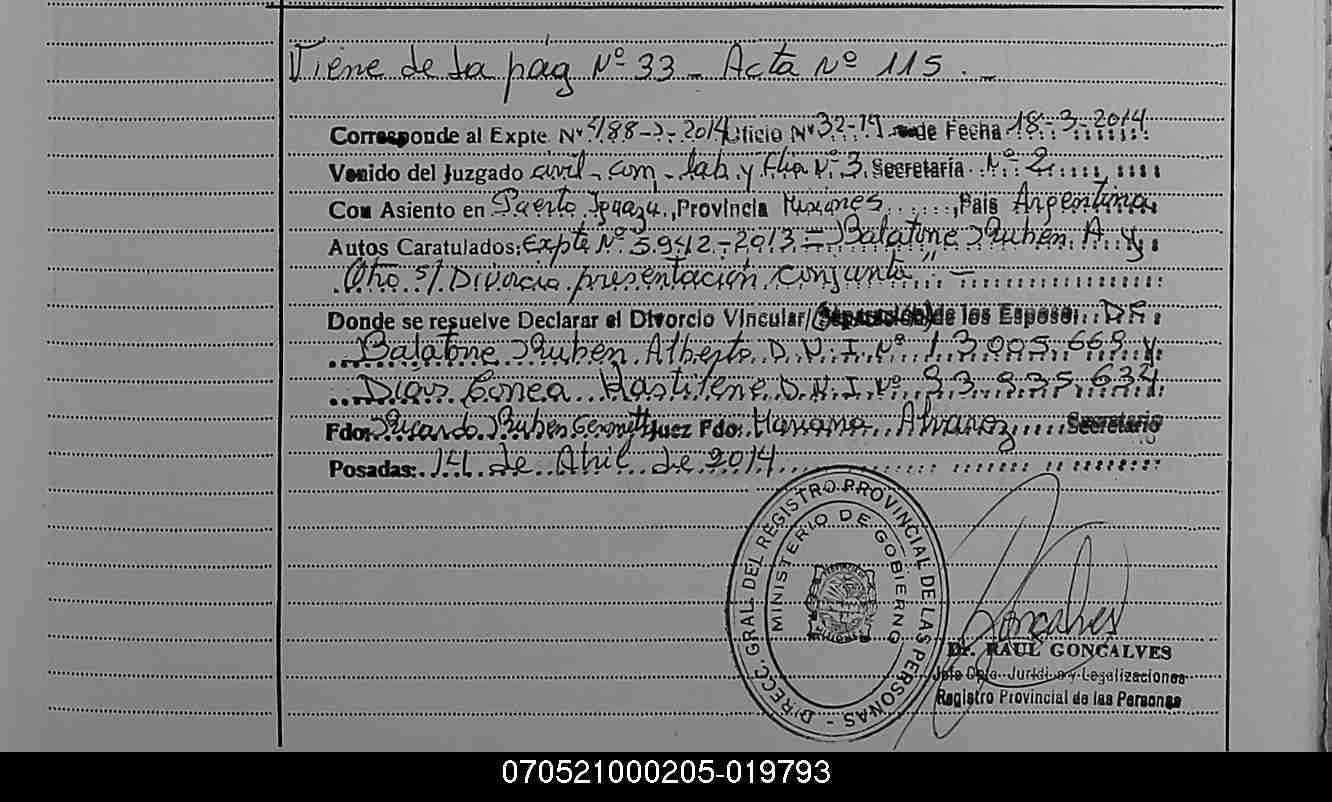 Viene de la pág Nº 33 - Acta Nº 115 . -
Corresponde al Expte Nº 4188-J-2014 Oficio Nº 32-14 de Fecha 18-3-2014
Venido del Juzgado civil - com - lab y flia Nº 3 Secretaría Nº 2
Con Asiento en Puerto Iguazú, Provincia Misiones, País Argentina
Autos Caratulados: Expte Nº 5.942-2013 = Balatone Ruben A. y
Otro s/ Divorcio presentación conjunta" -
Donde se resuelve Declarar el Divorcio Vincular/ (Separación) de los Esposos: DE
Balatone Ruben Alberto D.N.I. Nº 13.005.669 y
Dias Correa D.N.I. Nº 93.935.634
Fdo: Ricardo Ruben Juez Fdo: Mariana Alvarez Secretario
Posadas: 14 de Abril de 2014
DIRECC. GRAL. DEL REGISTRO PROVINCIAL DE LAS PERSONAS -
MINISTERIO DE GOBIERNO
Goncalves
Dr. RAUL GONCALVES
Jefe Dpto. Jurídico y Legalizaciones
Registro Provincial de las Personas
070521000205-019793